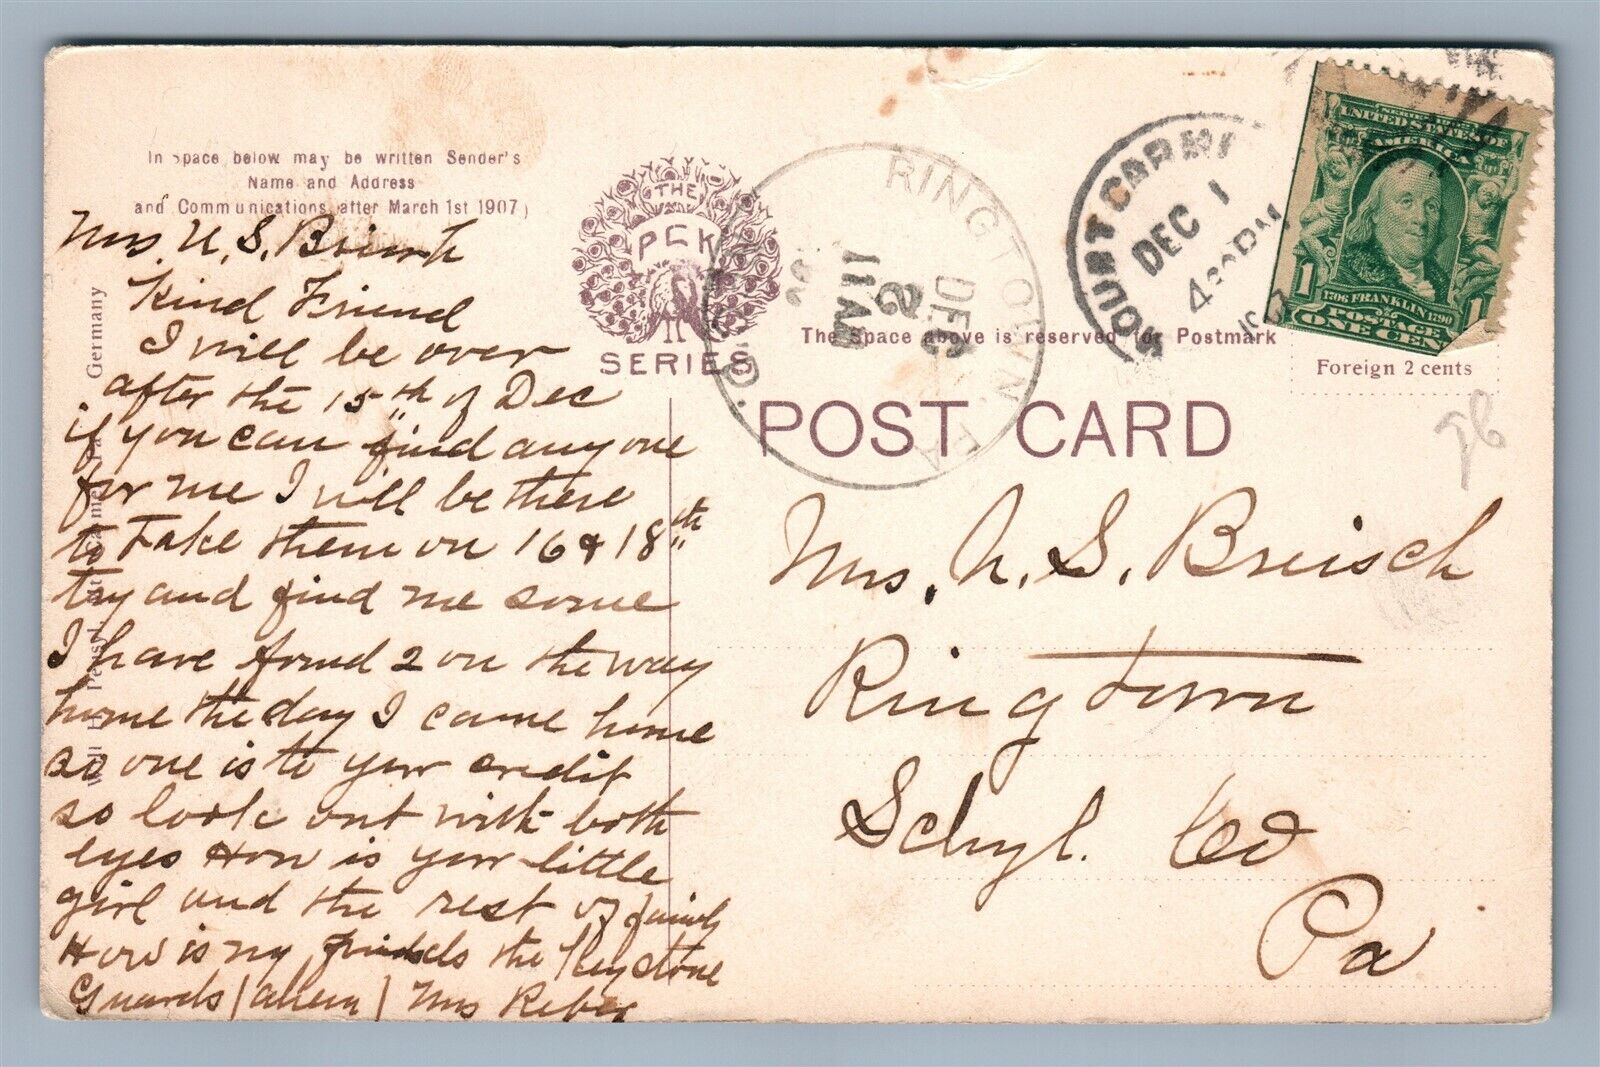 In space below may be written Sender's
Name and Address
and Communications after March 1st 1907)
Mrs. U. S. Breisch
Kind Friend
I will be over
after the 15th of Dec
if you can find any one
for me I will be there
to Take them on 16 & 18th
try and find me some
I have found 2 on the way
home the day I came home
so one is to your credit
so look out with both
eyes How is your little
girl and the rest of family
How is my friends the Keystone
Guards (ahem) Mrs Reber
Germany
THE
PCK
SERIES
RINGTOWN, PA
DEC
2
11 AM
MOUNT CARMEL
DEC 1
4 30 PM
The Space above is reserved for Postmark
SERIES 1902
UNITED STATES OF
AMERICA
1706 FRANKLIN 1790
POSTAGE
1 ONE CENT 1
Foreign 2 cents
POST CARD
Mrs. U. S. Breisch
Ringtown
Schyl. Co
Pa